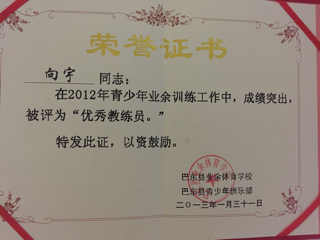 荣誉证书
向宇 同志：
在2012年青少年业余训练工作中，成绩突出，
被评为“优秀教练员。”
特发此证，以资鼓励。
巴东县业余体育学校
巴东县青少年俱乐部
二〇一三年一月三十一日